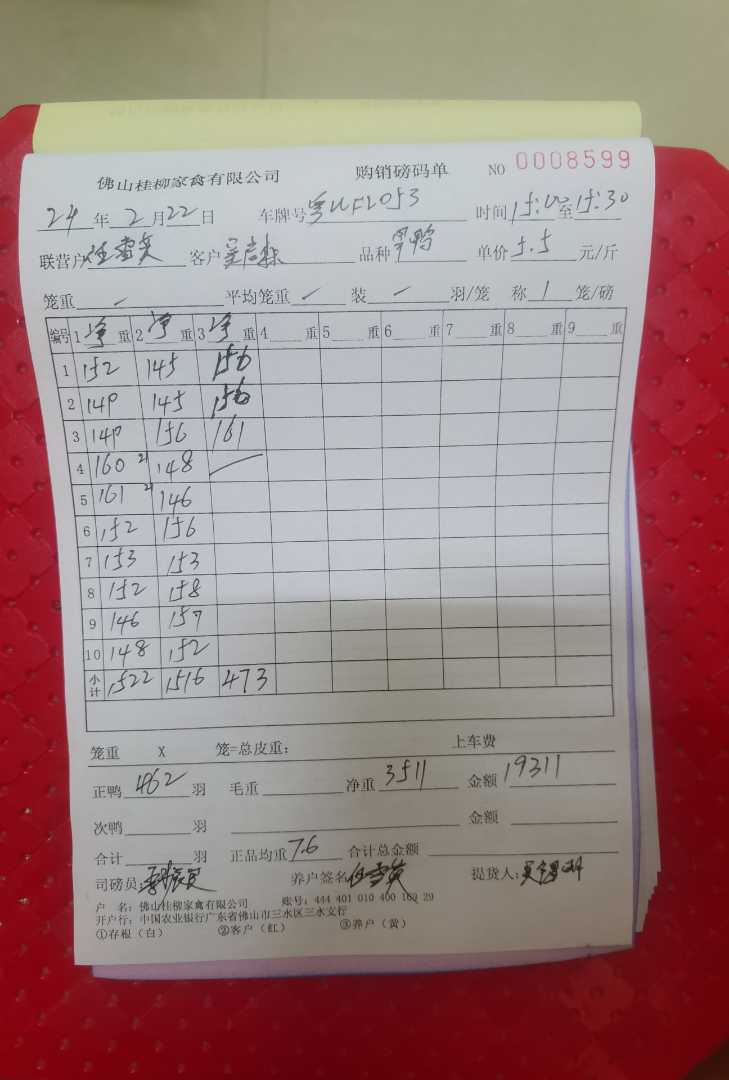 佛山桂柳家禽有限公司 购销磅码单 NO 0008599
24年2月22日 车牌号 时间15:00至15:30
联营户任雪英 客户 品种 单价5.5元/斤
笼重 — 平均笼重 — 装 — 羽/笼 称 1 笼/磅
编号 1净重 2净重 3净重 4 重 5 重 6 重 7 重 8 重 9 重
1 152 145 156
2 149 145 156
3 149 156 161
4 160 148
5 161 146
6 152 156
7 153 153
8 152 158
9 146 157
10 148 152
小计 1522 1516 473
笼重 X 笼=总皮重: 上车费
正鸭 462 羽 毛重 净重 3511 金额 19311
次鸭 羽 金额
合计 羽 正品均重 7.6 合计总金额
司磅员: 养户签名 任雪英 提货人:
户 名: 佛山桂柳家禽有限公司 账号: 444 401 010 400 169 29
开户行: 中国农业银行广东省佛山市三水区三水支行
①存根(白) ②客户(红) ③养户(黄)